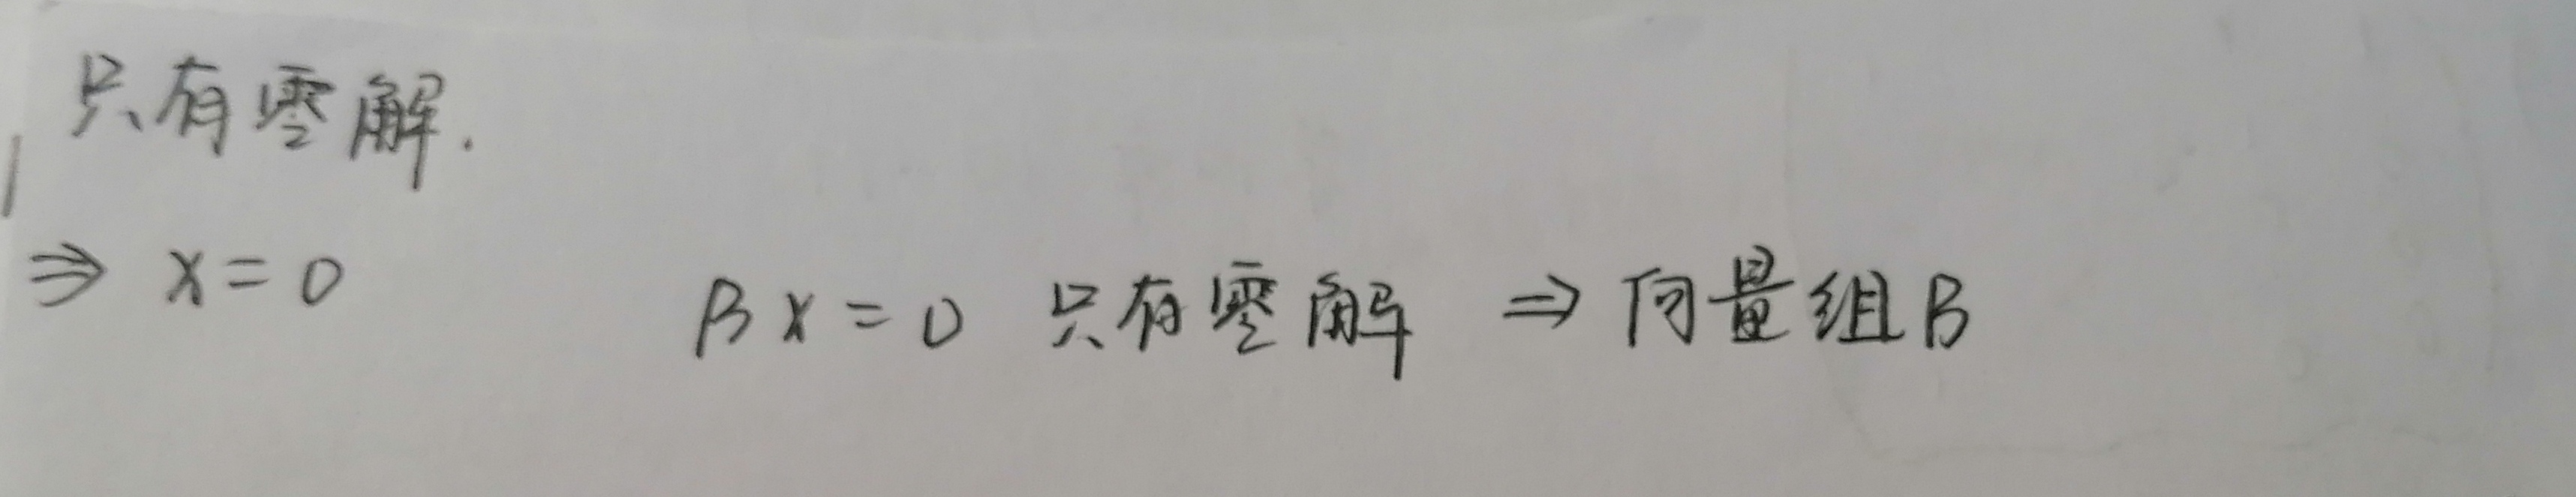 只有零解.
⇒ x = 0
Bx = 0 只有零解 ⇒ 向量组B